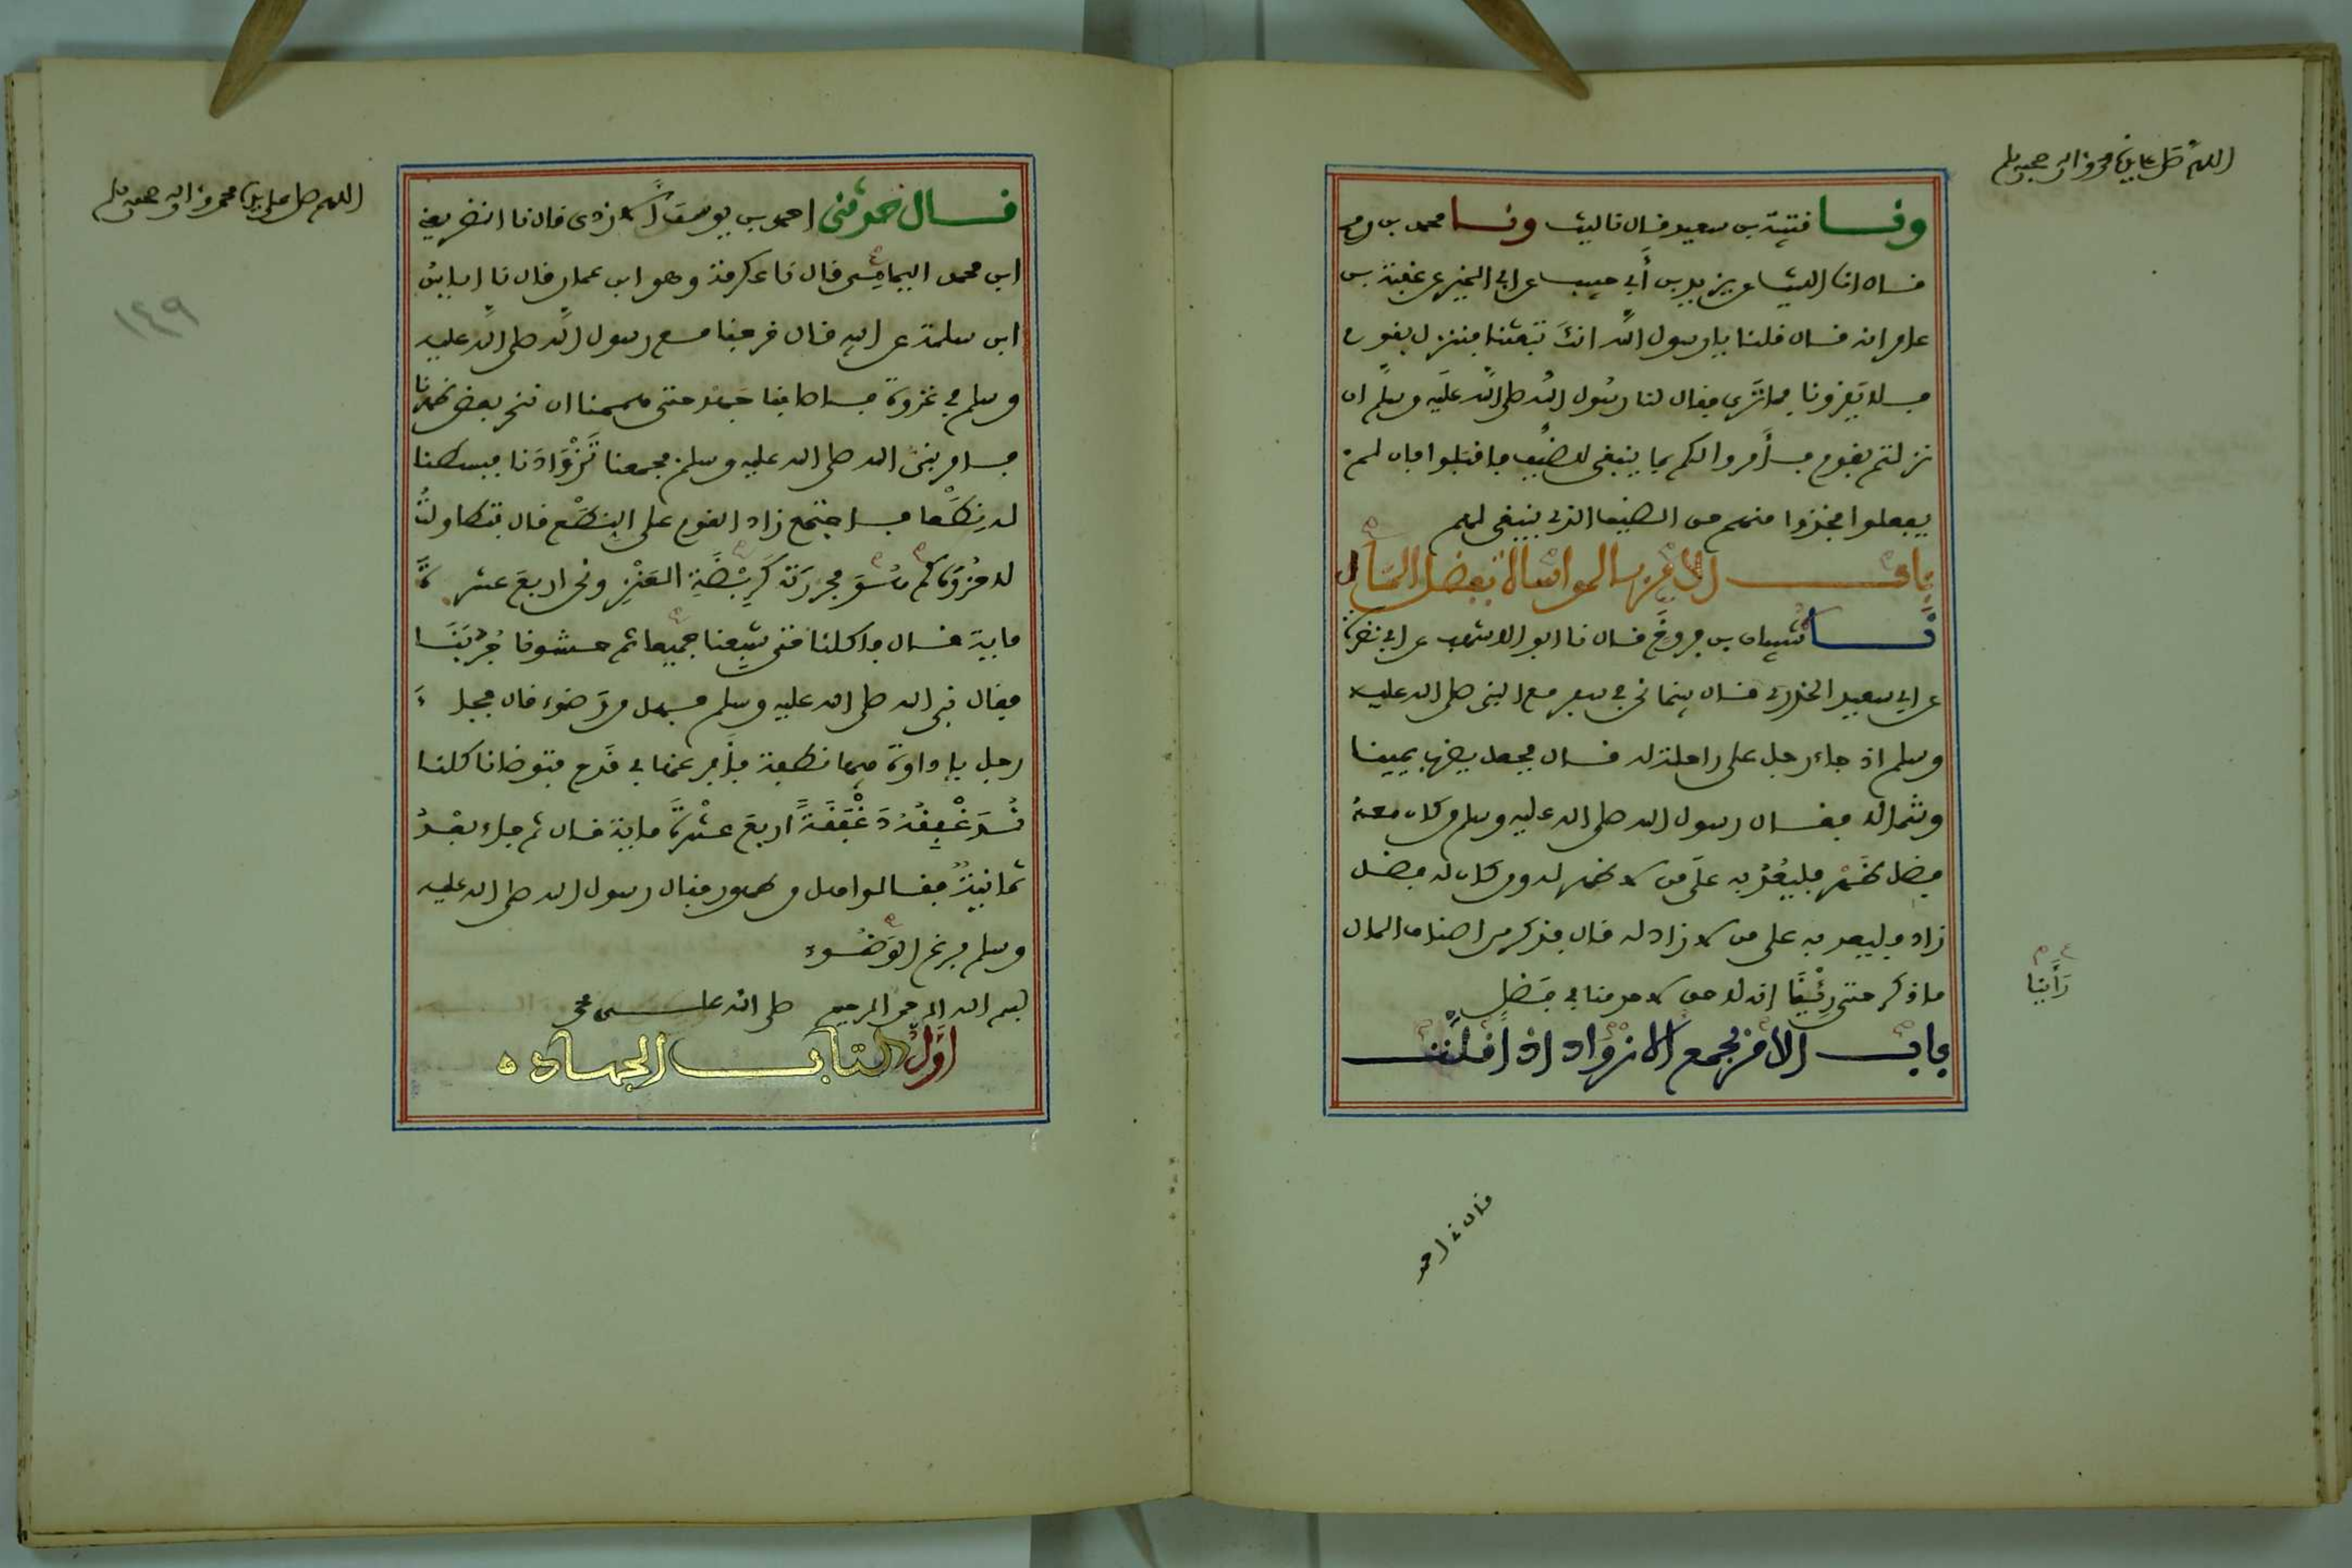 اللهم صل على سيدنا محمد وآله وصحبه وسلم
ونا قتيبة بن سعيد قال نا ليث ونا محمد بن رمح
قال انا الليث عن يزيد بن أبي حبيب عن ابي الخير عن عقبة بن
عامر انه قال قلنا يا رسول الله انك تبعثنا فننزل بقوم
فلا يقروننا فما ترى فقال لنا رسول الله صلى الله عليه وسلم ان
نزلتم بقوم فأمروا لكم بما ينبغي للضيف فاقبلوا فان لم
يفعلوا فخذوا منهم حق الضيف الذي ينبغي لهم
باب الامر بالمواساة بفضل المال
نا شيبان بن فروخ قال نا ابو الاشهب عن ابي نضرة
عن ابي سعيد الخدري قال بينما نحن في سفر مع النبي صلى الله عليه
وسلم اذ جاء رجل على راحلة له قال فجعل يضرب يمينا
وشمالا فقال رسول الله صلى الله عليه وسلم من كان معه
فضل ظهر فليعد به على من لا ظهر له ومن كان له فضل
زاد فليعد به على من لا زاد له قال فذكر من اصناف المال
ما ذكر حتى رئينا انه لا حق لاحد منا في فضل
رأينا
باب الامر بجمع الازواد اذا قلت
قال حدثني احمد
اللهم صل على سيدنا محمد وآله وصحبه وسلم
١٤٩
قال حدثني احمد بن يوسف الازدي قال نا النضر يعني
ابن محمد اليمامي قال نا عكرمة وهو ابن عمار قال نا اياس
ابن سلمة عن ابيه قال خرجنا مع رسول الله صلى الله عليه
وسلم في غزوة فاصابنا جهد حتى هممنا ان ننحر بعض ظهرنا
فامر نبي الله صلى الله عليه وسلم فجمعنا تزوادنا فبسطنا
له نطعا فاجتمع زاد القوم على النطع قال فتطاولت
لاحزره كم هو فحزرته كربضة العنز ونحن اربع عشرة
ماية قال فاكلنا حتى شبعنا جميعا ثم حشونا جربنا
فقال نبي الله صلى الله عليه وسلم فهل من وضوء قال فجاء
رجل باداوة فيها نطفة فافرغها في قدح فتوضانا كلنا
ندغفقه دغفقة اربع عشرة ماية قال ثم جاء بعد
ثمانية فقالوا هل من طهور فقال رسول الله صلى الله عليه
وسلم فرغ الوضوء
بسم الله الرحمن الرحيم صلى الله على محمد
اول كتاب الجهاد